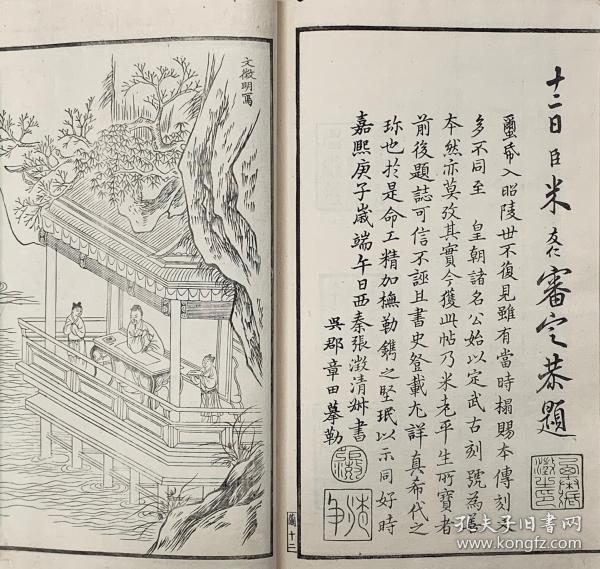 十二日臣米友仁審定恭題
蠒帋入昭陵世不復見雖有當時搨賜本傳刻又
多不同至 皇朝諸名公始以定武古刻號為善
本然亦莫攷其實今獲此帖乃米老平生所寶者
前後題誌可信不誣且書史登載尤詳真希代之
珎也於是命工精加橅勒鐫之堅珉以示同好時
嘉熙庚子歲端午日西秦張澂清叔書
吳郡章田摹勒
文徵明寫
孔夫子旧书网
www.kongfz.com